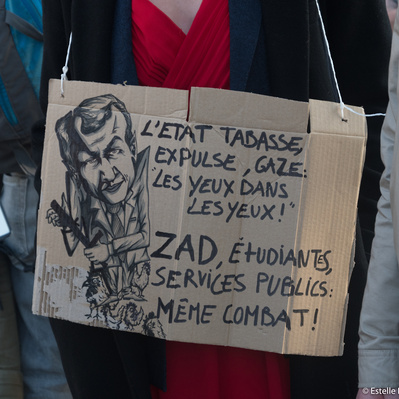 L'ETAT TABASSE,
EXPULSE, GAZE:
"LES YEUX DANS
LES YEUX!"
ZAD, ÉTUDIANTES,
SERVICES PUBLICS:
MÊME COMBAT!
© Estelle